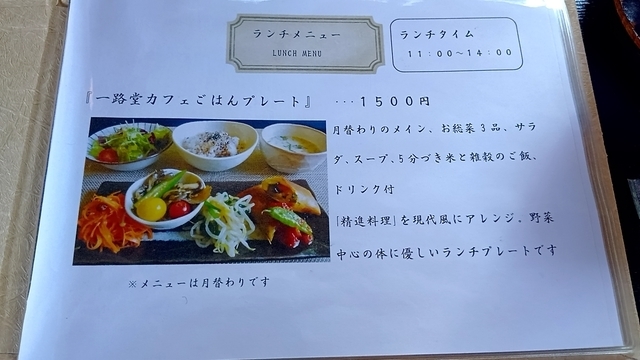 ランチメニュー
LUNCH MENU
ランチタイム
11:00~14:00
『一路堂カフェごはんプレート』 ・・・1500円
月替わりのメイン、お総菜3品、サラ
ダ、スープ、5分づき米と雑穀のご飯、
ドリンク付
「精進料理」を現代風にアレンジ。野菜
中心の体に優しいランチプレートです
※メニューは月替わりです